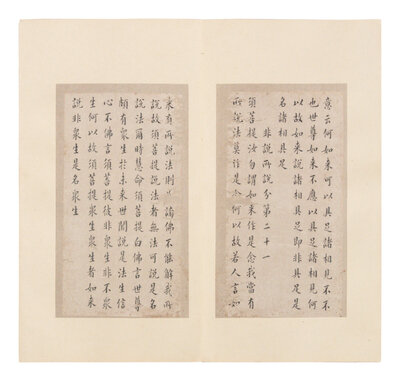 意云何如來可以具足諸相見不不
也世尊如來不應以具足諸相見何
以故如來說諸相具足即非具足是
名諸相具足
非說所說分第二十一
須菩提汝勿謂如來作是念我當有
所說法莫作是念何以故若人言如
來有所說法則為謗佛不能解我所
說故須菩提說法者無法可說是名
說法爾時慧命須菩提白佛言世尊
頗有衆生於未來世聞說是法生信
心不佛言須菩提彼非衆生非不衆
生何以故須菩提衆生衆生者如來
說非衆生是名衆生